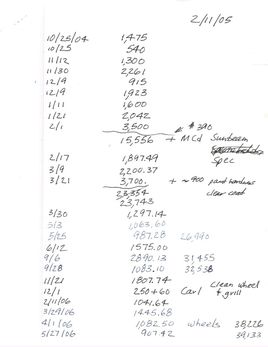 2/11/05
10/25/04 1,475
10/25 540
11/12 1,300
11/30 2,261
12/9 915
12/9 1,923
1/11 1,600
1/21 2,042
2/1 3,500 $390
15,556 + MCd Sunbeam
Spec
2/17 1,897.49
3/9 2200.37
3/21 3,700. + ~900 paint hardware
23,354 clear coat
23,743
3/30 1,297.14
5/3 1,063.60
5/25 987.28 26,990
6/12 1575.00
9/6 2890.13 31,455
9/28 1083.10 32,538
11/21 1807.74 clean wheel
12/1 250+60 Carl + grill
2/11/06 1041.64
3/29/06 1445.68
4/1/06 1082.50 wheels 38,226
5/27/06 907.42 39,133